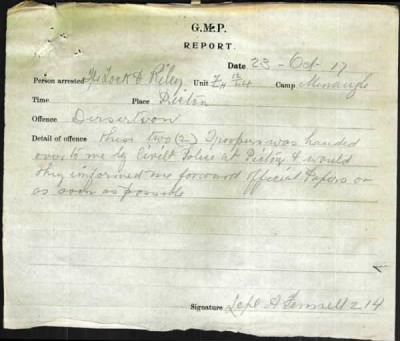 G.M.P.
REPORT.
Date 23-Oct-17
Person arrested Tprs Lock & Riley Unit 12 LH Camp Menangle
Time Place Picton
Offence Dersertoon
Detail of offence these two (2) Troopers was handed
over to me by Civilt Police at Picton & would
they informed me forward Official Papers on
as soon as possible
Signature Lcpl A Fennell 214